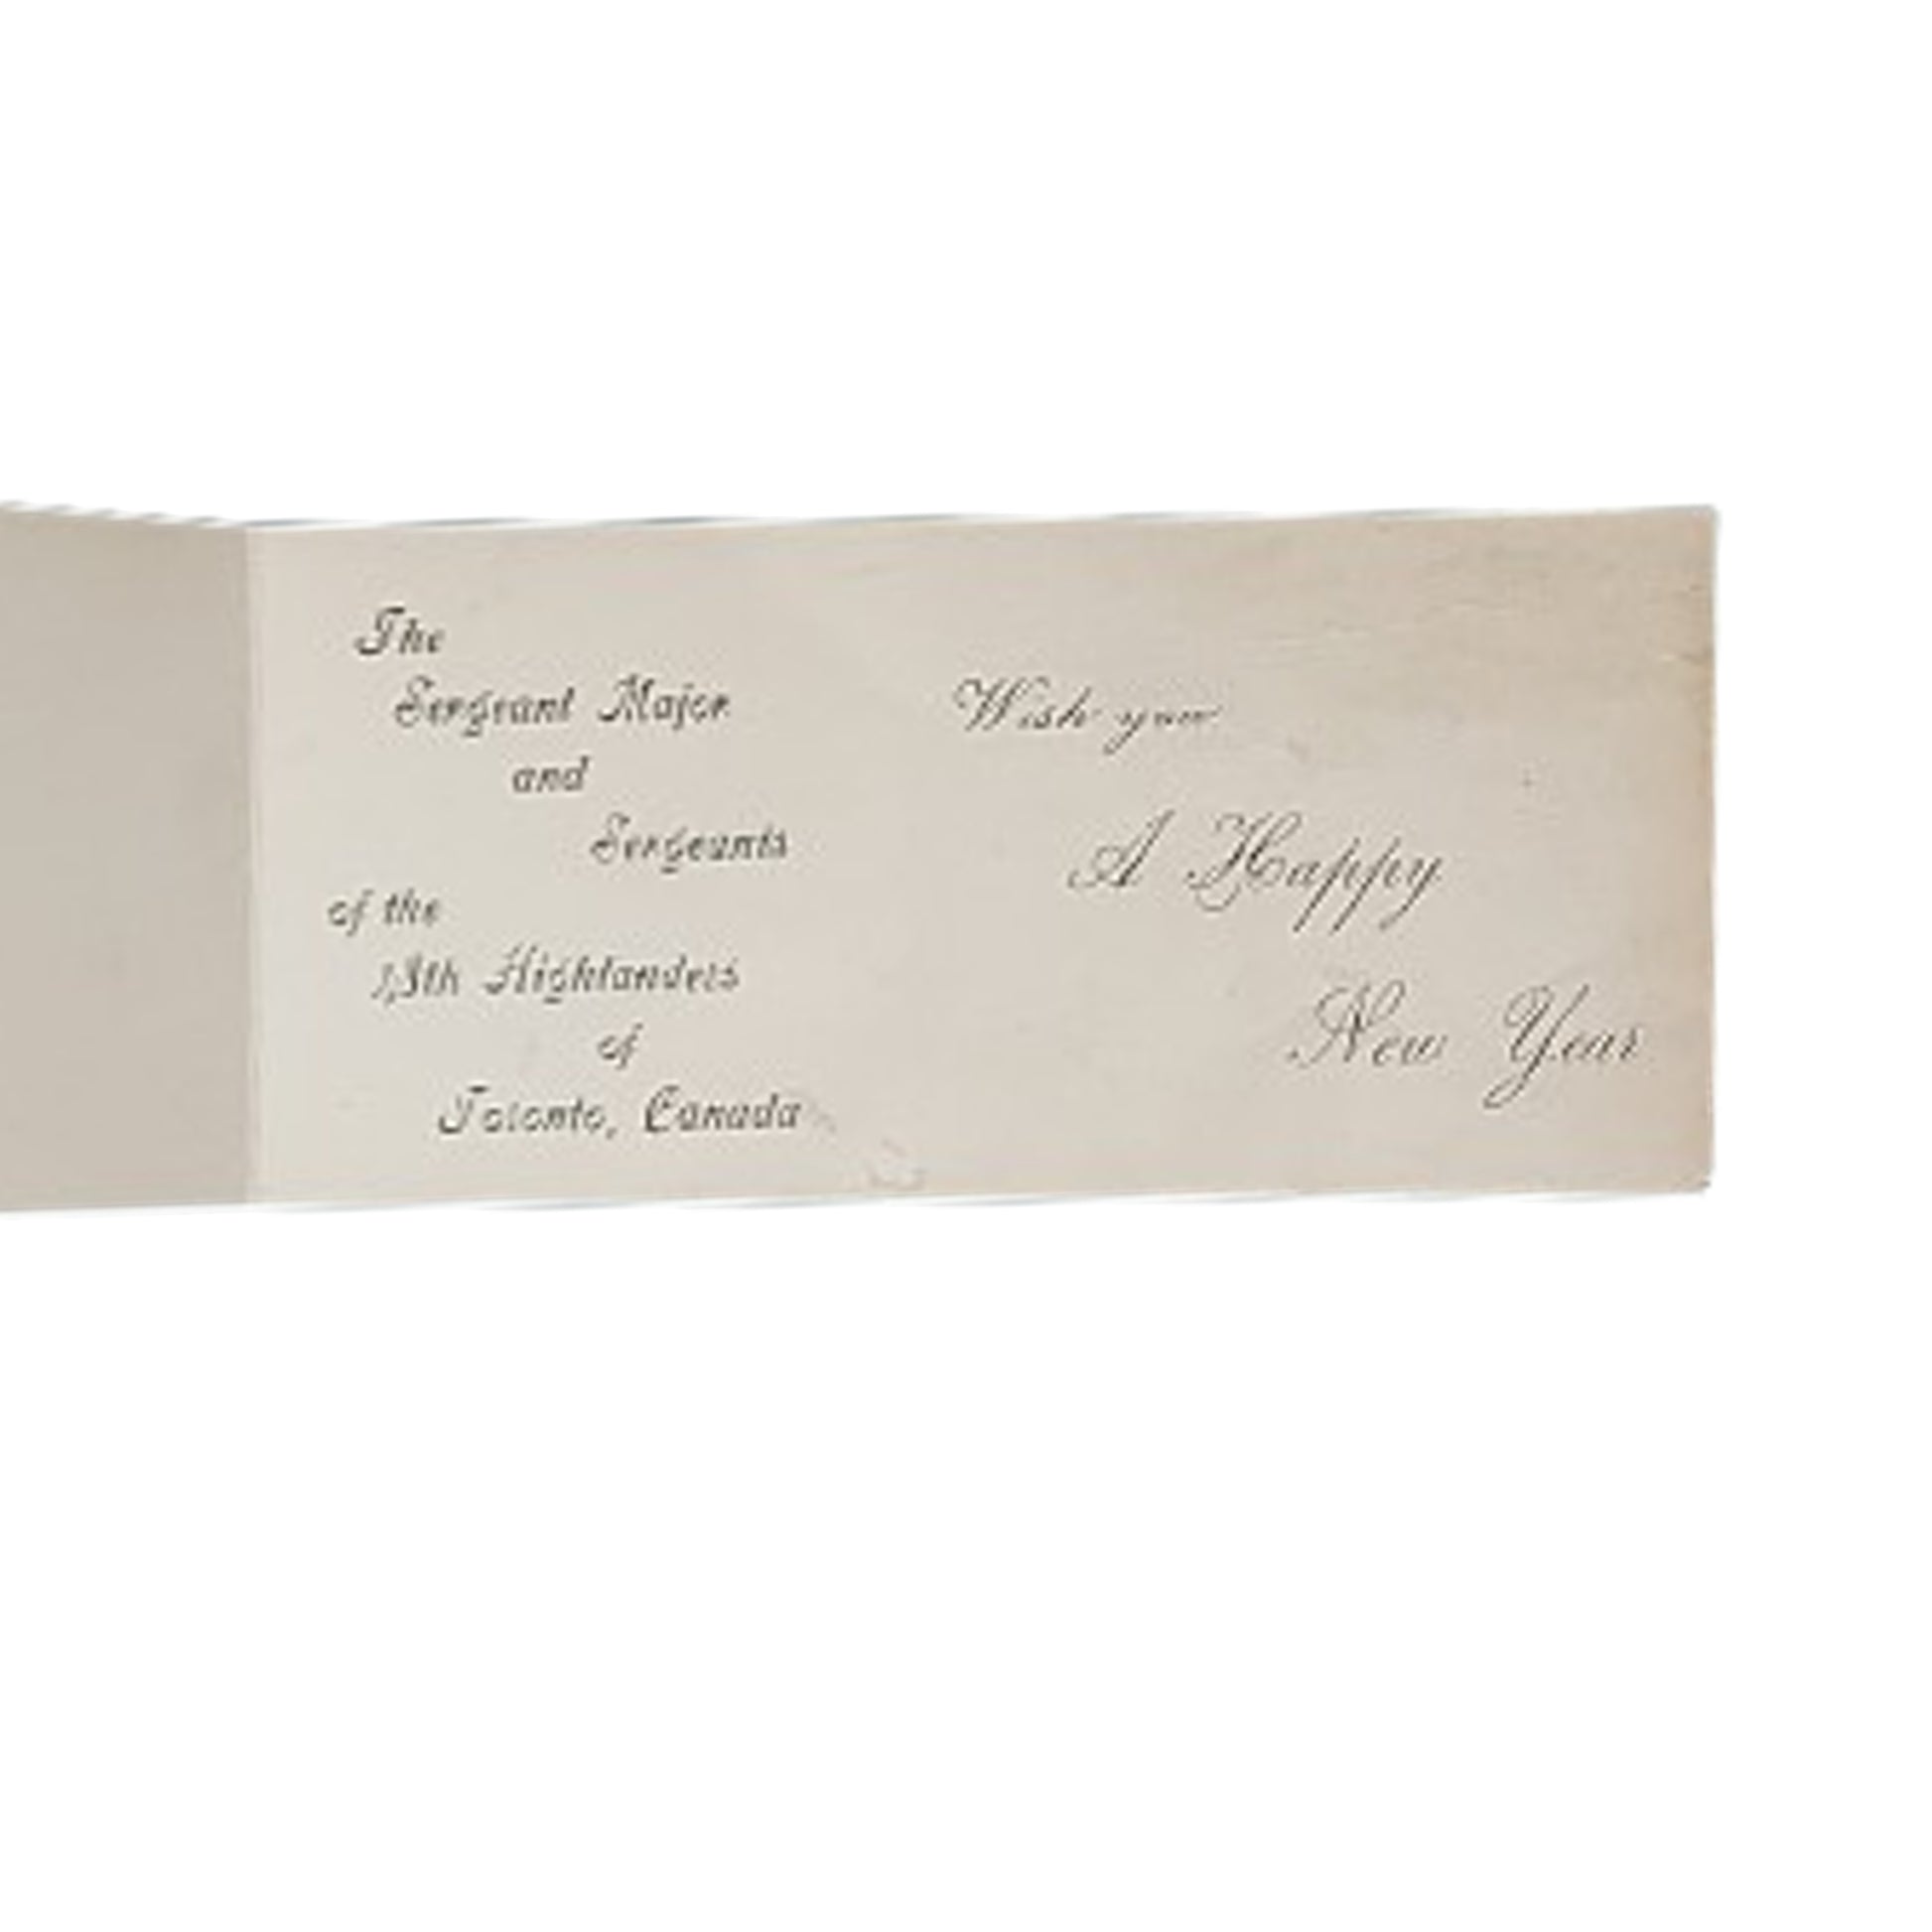 The
Sergeant Major
and
Sergeants
of the
48th Highlanders
of
Toronto, Canada
Wish you
A Happy
New Year